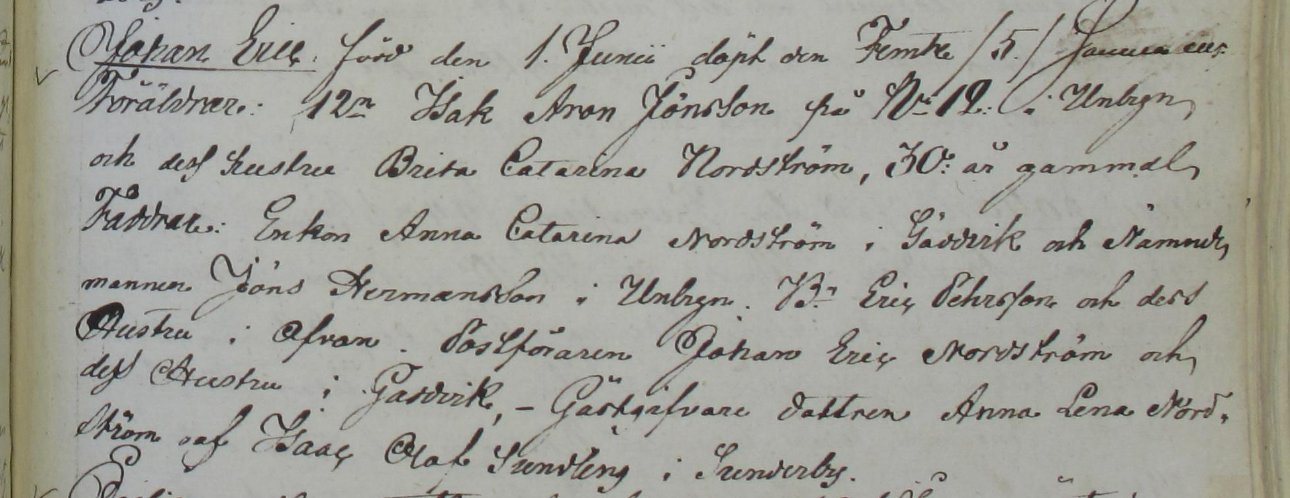 Johan Eric. född den 1. Junii döpt den Femte /5./ Samma
Föräldrar: Isak Aron Jönsson på No 12. i Unbyn,
och dess hustru Brita Catarina Nordström, 30. år gammal,
Faddrar: Enkan Anna Catarina Nordström i Gäddvik och Nämnde,
mannen Jöns Hermansson i Unbyn. Eric Pehrsson och dess
Hustru i Afvan. Postföraren Johan Eric Nordström och
dess Hustru i Gäddvik, – Gästgifvare dattren Anna Lena Nord-
ström af Isaac Olof Sundling i Sunderby.